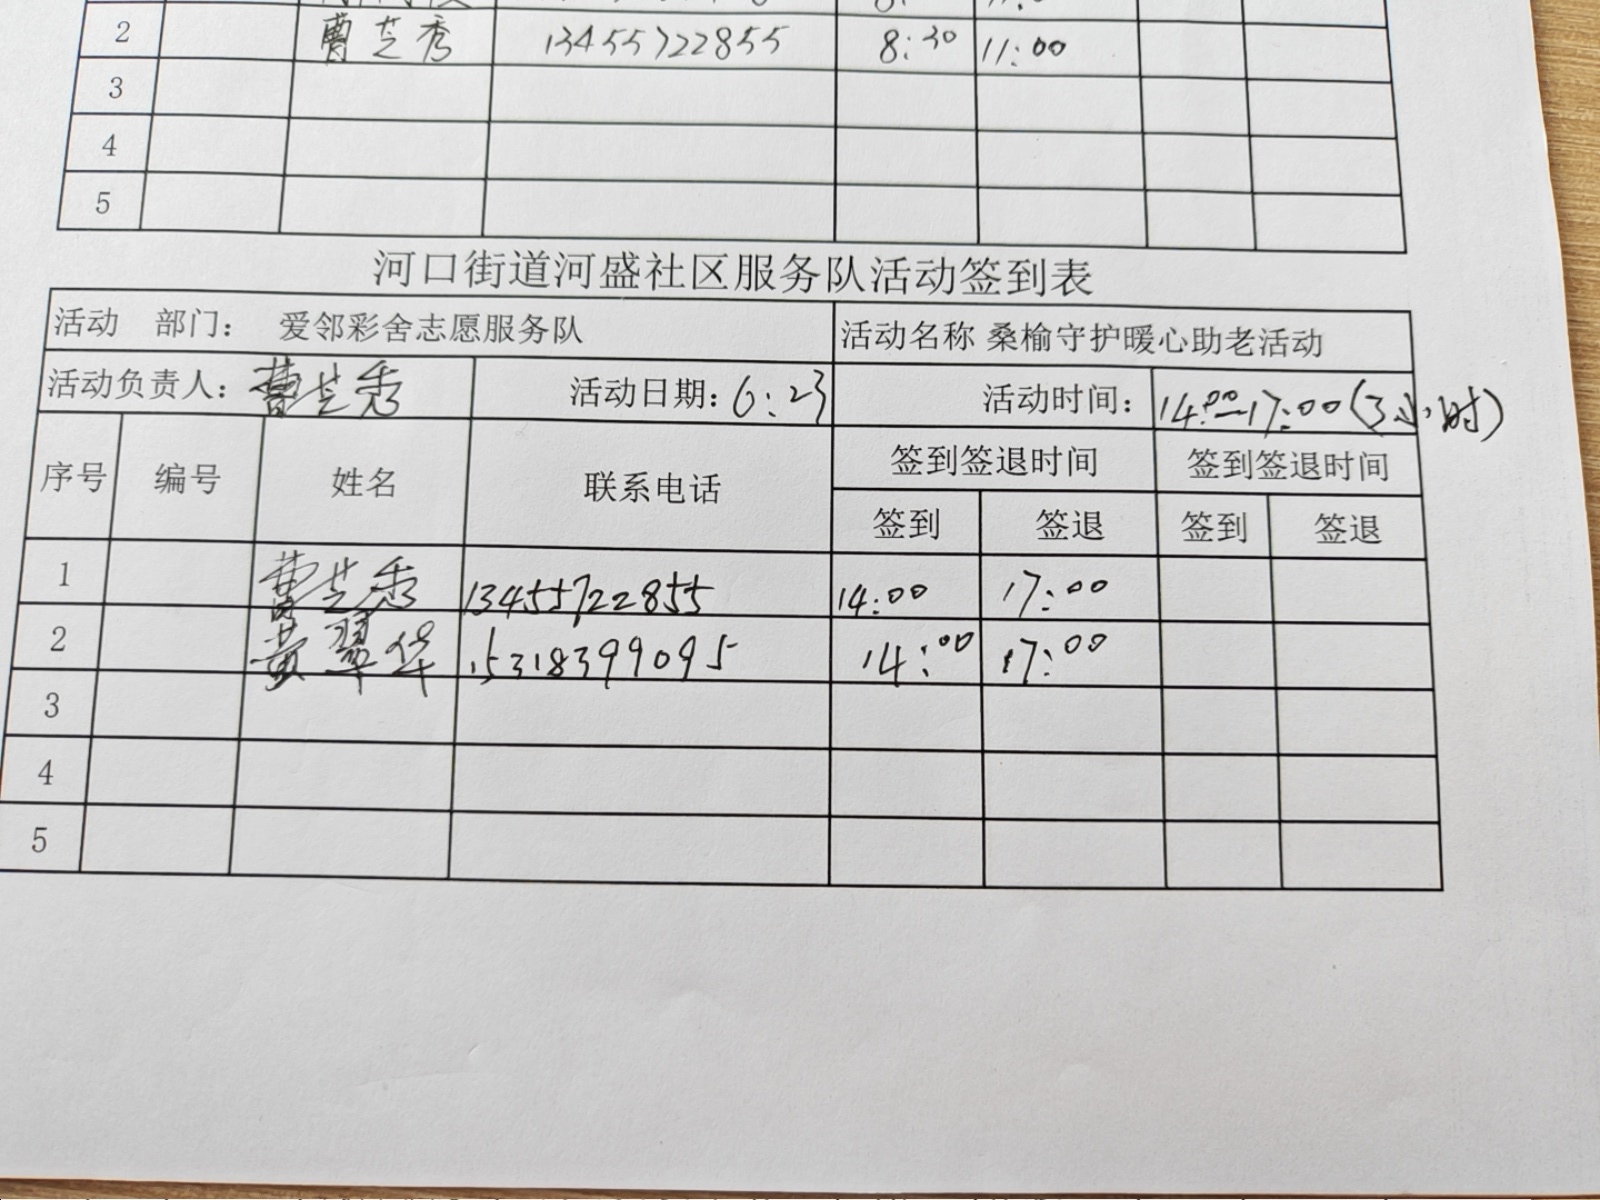 2 曹芝秀 13455722855 8:30 11:00
3
4
5
河口街道河盛社区服务队活动签到表
活动 部门: 爱邻彩舍志愿服务队 活动名称 桑榆守护暖心助老活动
活动负责人: 曹芝秀 活动日期: 6:23 活动时间: 14:00-17:00(3小时)
序号 编号 姓名 联系电话 签到签退时间 签到签退时间
签到 签退 签到 签退
1 曹芝秀 13455722855 14:00 17:00
2 黄翠华 15318399095 14:00 17:00
3
4
5